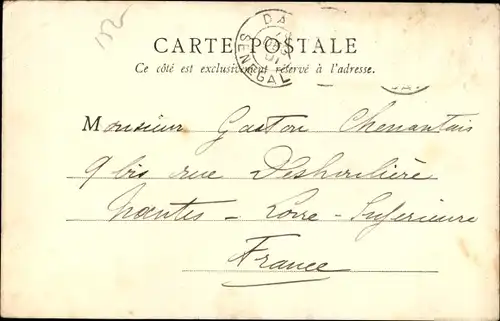 152
DA
SENEGAL
CARTE POSTALE
Ce côté est exclusivement réservé à l'adresse.
Monsieur Gaston Chenantais
9 bis rue Deshoulière
Nantes - Loire - Inférieure
France